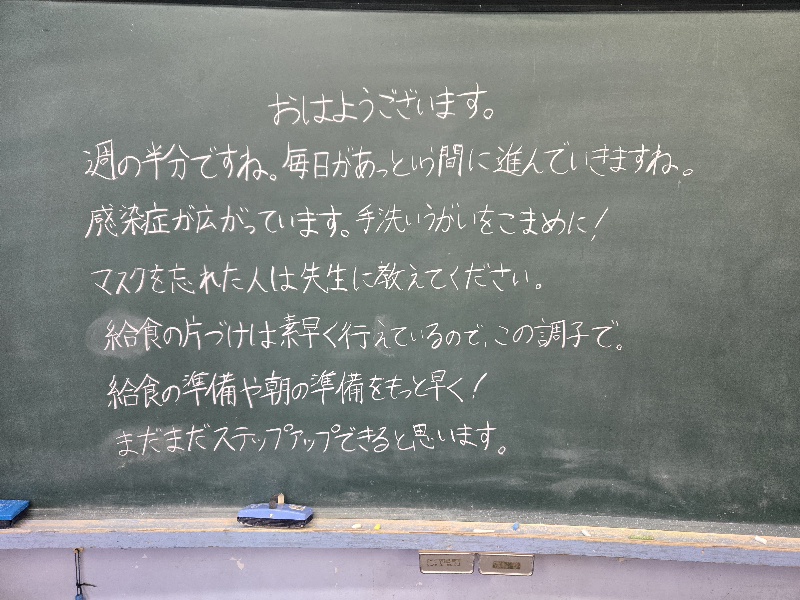 おはようございます。
週の半分ですね。毎日があっという間に進んでいきますね。
感染症が広がっています。手洗いうがいをこまめに!
マスクを忘れた人は先生に教えてください。
給食の片づけは素早く行えているので、この調子で。
給食の準備や朝の準備をもっと早く!
まだまだステップアップできると思います。